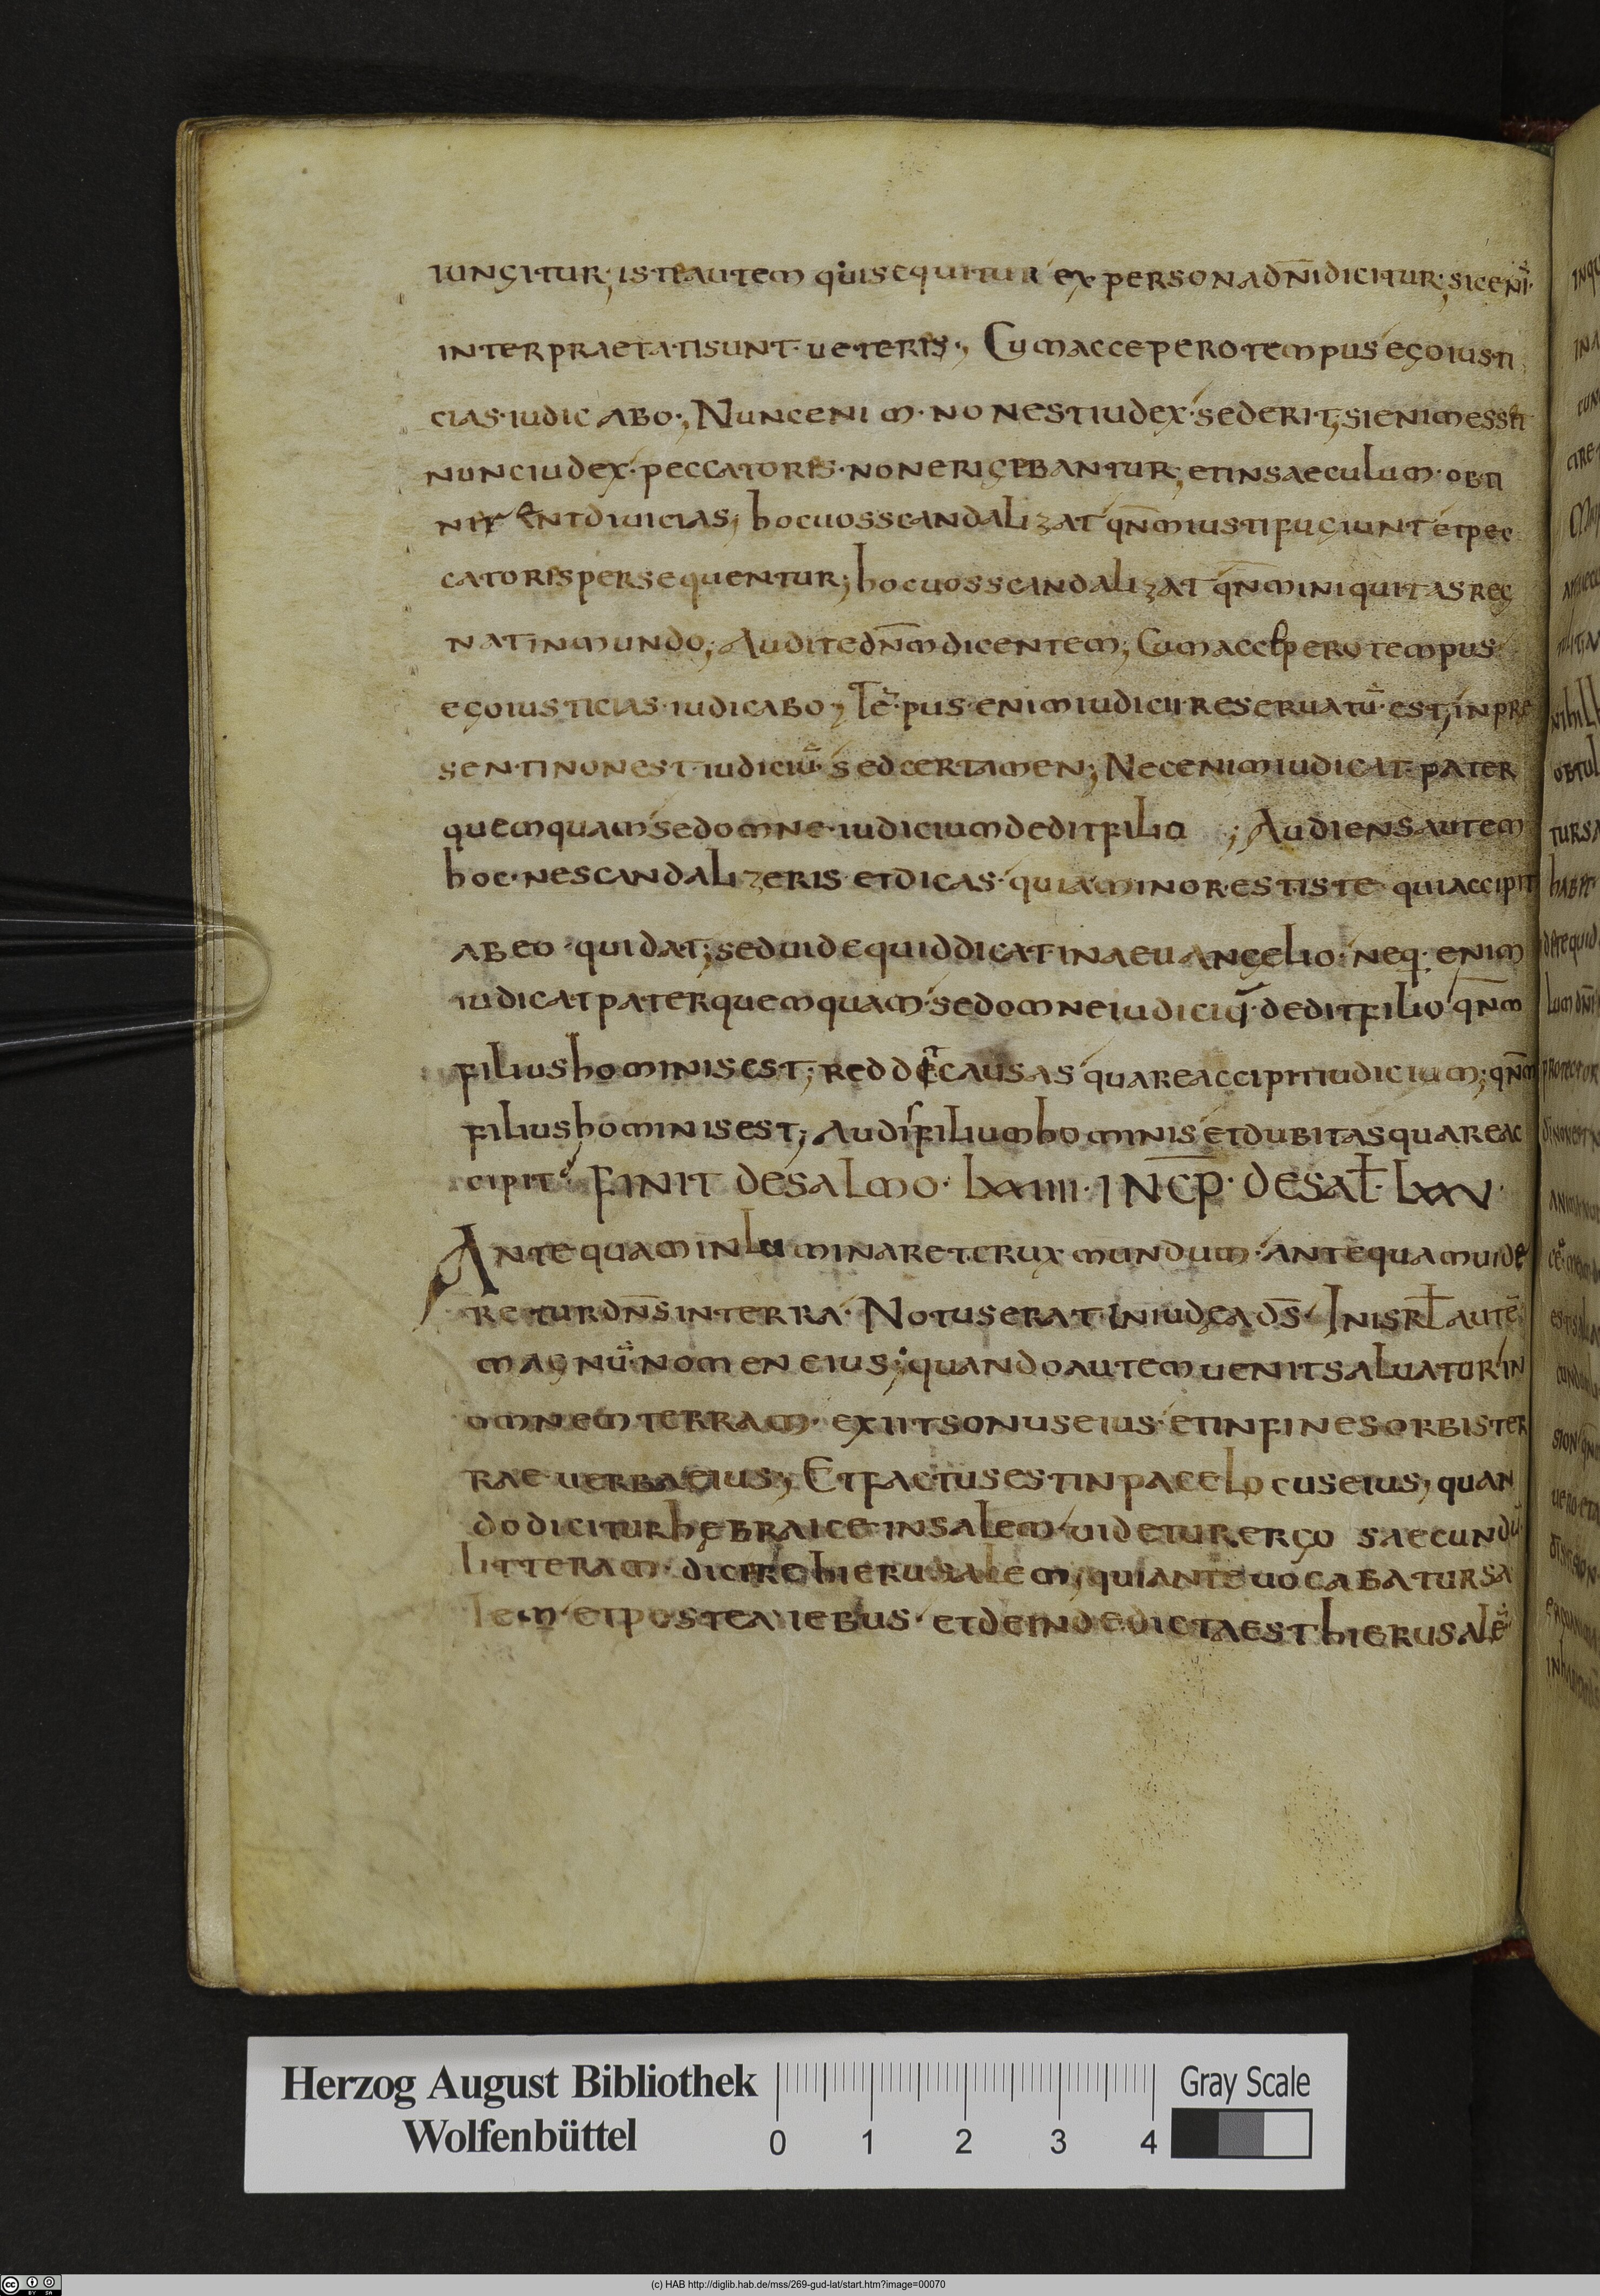 iungitur; iste autem qui sequitur ex persona dn̅i dicitur; sic eni̅
interpraetati sunt ueteris., Cum accepero tempus ego iusti
cias iudicabo., Nunc enim non est iudex sed erit; si enim esset
nunc iudex peccatores non erigebantur, et in saeculum obti
nerent diuicias; hoc uos scandalizat qn̅m iusti fugiunt et pec
catores persequentur; hoc uos scandalizat qn̅m iniquitas reg
nat in mundo; Audite dn̅m dicentem; Cum accepero tempus
ego iusticias iudicabo; Te̅pus enim iudicii reseruatu̅ est, in pre
senti non est iudiciu̅ sed certamen; Nec enim iudicat pater
quemquam sed omne iudicium dedit filio ; Audiens autem
hoc ne scandalizeris et dicas quia minor est iste qui accipit
ab eo qui dat; sed uide quid dicat in aeuangelio neq. enim
iudicat pater quemquam sed omne iudiciu̅ dedit filio qn̅m
filius hominis est; redde causas quare accipit iudicium; qn̅m
filius hominis est; Audis filium hominis et dubitas quare ac
cipit; FINIT DE SALMO LXXIIII INC̅P DE SAL̅ LXXV
Antequam inluminaret crux mundum antequam uide
retur dn̅s in terra Notus erat in iudea ds̅ In isrl̅ aute̅
magnu̅ nomen eius; quando autem uenit saluator in
omnem terram exiit sonus eius et in fines orbis ter
rae uerba eius; Et factus est in pace locus eius, quan
do dicitur hebraice in salem uidetur ergo saecundu̅
litteram dicere hierusalem, qui ante uocabatur sa
lem et postea iebus et deinde dicta est hierusale̅
inqu
nihil
obtul
tursa
habit
lum dn̅i
Herzog August Bibliothek
Wolfenbüttel
0 1 2 3 4
Gray Scale
(c) HAB http://diglib.hab.de/mss/269-gud-lat/start.htm?image=00070